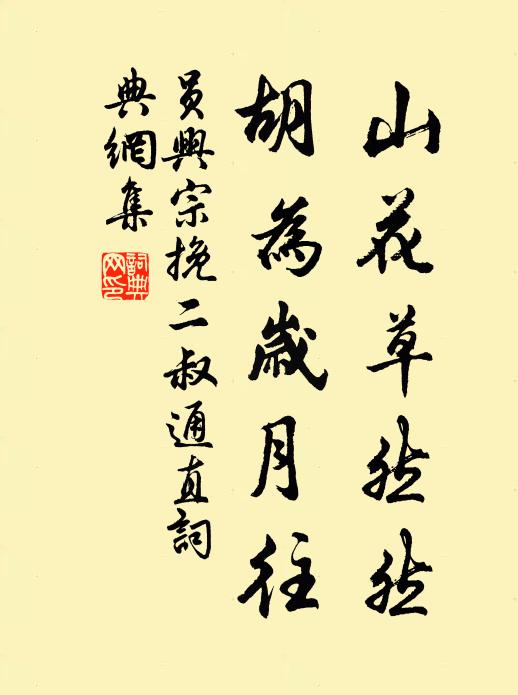 山花草然然
胡為歲月往
員興宗挽二叔通直詞
典網集
詞典網印